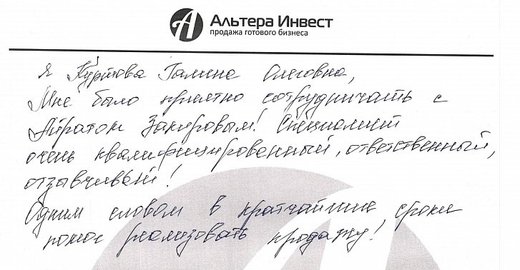 Альтера Инвест
продажа готового бизнеса
Я Куртова Галина Олеговна,
Мне было приятно сотрудничать с
Айратом Закировым! Специалист
очень квалифицированный, ответственный,
отзывчивый!
Одним словом в кратчайшие сроки
помог реализовать продажу!